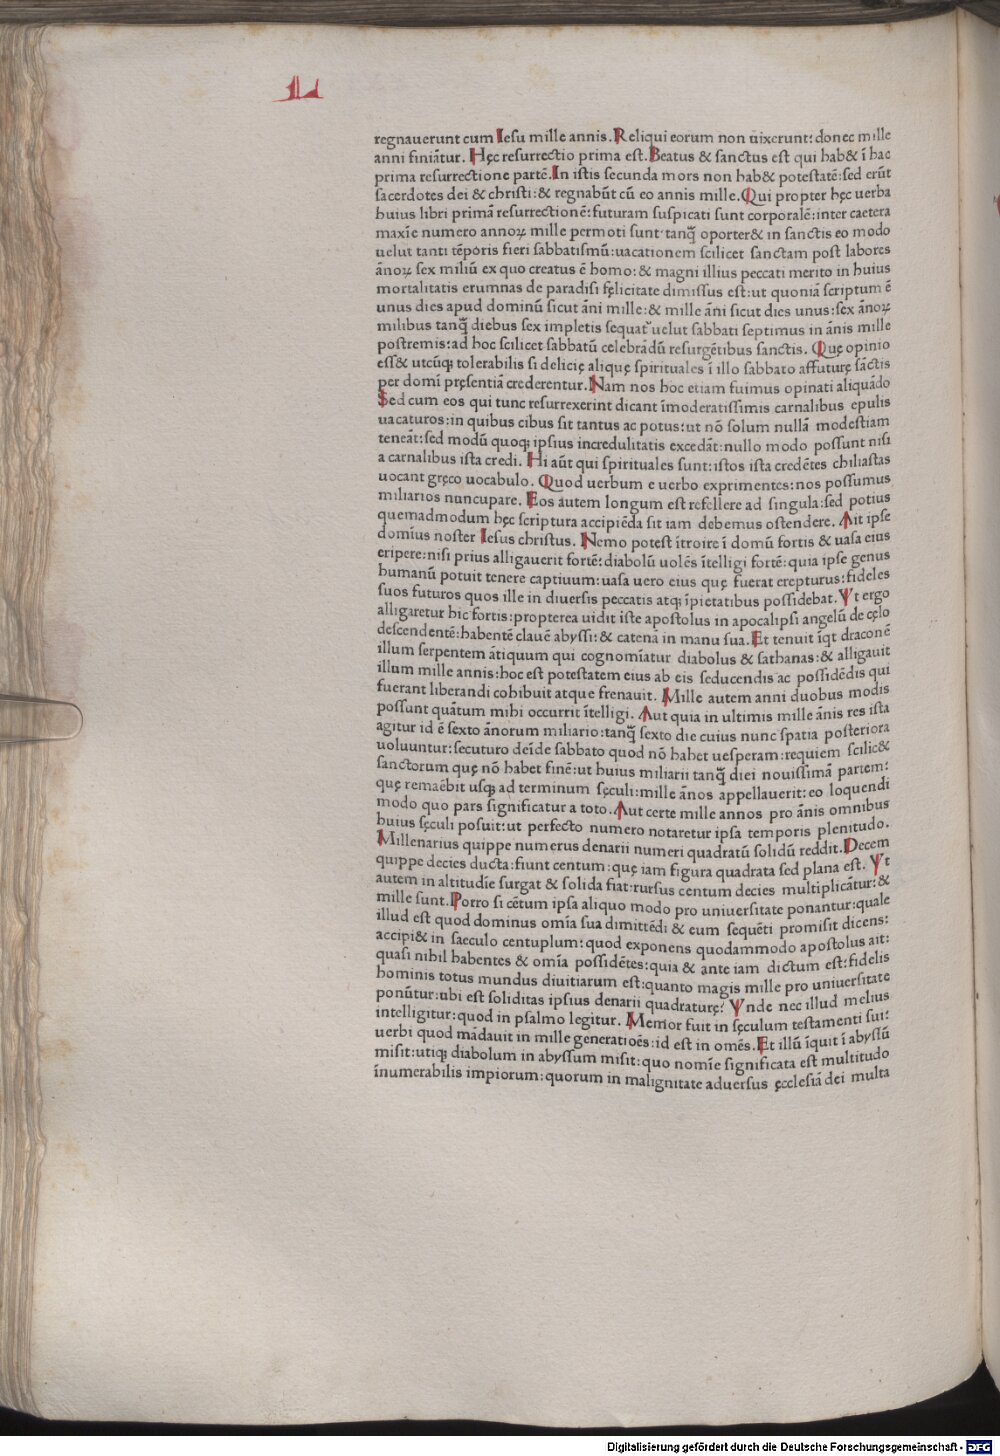 L
regnauerunt cum Iesu mille annis. Reliqui eorum non uixerunt: donec mille
anni finiãtur. Hęc resurrectio prima est. Beatus & sanctus est qui hab& ĩ hac
prima resurrectione partẽ. In istis secunda mors non hab& potestatẽ: sed erũt
sacerdotes dei & christi: & regnabũt cũ eo annis mille. Qui propter hęc uerba
huius libri primã resurrectionẽ: futuram suspicati sunt corporalẽ: inter caetera
maxĩe numero annoꝝ mille permoti sunt· tanq̃ oporter& in sanctis eo modo
uelut tanti tẽporis fieri sabbatismũ: uacationem scilicet sanctam post labores
ãnoꝝ sex miliũ ex quo creatus ẽ homo: & magni illius peccati merito in huius
mortalitatis erumnas de paradisi fęlicitate dimissus est: ut quoniã scriptum ẽ
unus dies apud dominũ sicut ãni mille: & mille ãni sicut dies unus: sex ãnoꝝ
milibus tanq̃ diebus sex impletis sequat᷑ uelut sabbati septimus in ãnis mille
postremis: ad hoc scilicet sabbatũ celebrãdũ resurgẽtibus sanctis. Quę opinio
ess& utcũqꝫ tolerabilis si delicię aliquę spirituales ĩ illo sabbato affuturę sãctis
per domĩ pręsentiã crederentur. Nam nos hoc etiam fuimus opinati aliquãdo
Sed cum eos qui tunc resurrexerint dicant ĩmoderatissimis carnalibus epulis
uacaturos: in quibus cibus sit tantus ac potus: ut nõ solum nullã modestiam
teneãt: sed modũ quoqꝫ ipsius incredulitatis excedãt: nullo modo possunt nisi
a carnalibus ista credi. Hi aũt qui spirituales sunt: istos ista credẽtes chiliastas
uocant gręco uocabulo. Quod uerbum e uerbo exprimentes: nos possumus
miliarios nuncupare. Eos autem longum est refellere ad singula: sed potius
quemadmodum hęc scriptura accipiẽda sit iam debemus ostendere. Ait ipse
domĩus noster Iesus christus. Nemo potest ĩtroire ĩ domũ fortis & uasa eius
eripere: nisi prius alligauerit fortẽ: diabolũ uolẽs ĩtelligi fortẽ: quia ipse genus
humanũ potuit tenere captiuum: uasa uero eius quę fuerat erepturus: fideles
suos futuros quos ille in diuersis peccatis atqꝫ ĩpietatibus possidebat. Vt ergo
alligaretur hic fortis: propterea uidit iste apostolus in apocalipsi angelũ de cęlo
descendentẽ: habentẽ clauẽ abyssi: & catenã in manu sua. Et tenuit ĩqt draconẽ
illum serpentem ãtiquum qui cognomĩatur diabolus & sathanas: & alligauit
illum mille annis: hoc est potestatem eius ab eis seducendis ac possidẽdis qui
fuerant liberandi cohibuit atque frenauit. Mille autem anni duobus modis
possunt quãtum mihi occurrit ĩtelligi. Aut quia in ultimis mille ãnis res ista
agitur id ẽ sexto ãnorum miliario: tanq̃ sexto die cuius nunc spatia posteriora
uoluuntur: secuturo deĩde sabbato quod nõ habet uesperam: requiem scilic&
sanctorum quę nõ habet finẽ: ut huius miliarii tanq̃ diei nouissimã partem:
quę remaẽbit usqꝫ ad terminum sęculi: mille ãnos appellauerit: eo loquendi
modo quo pars significatur a toto. Aut certe mille annos pro ãnis omnibus
huius sęculi posuit: ut perfecto numero notaretur ipsa temporis plenitudo.
Millenarius quippe numerus denarii numeri quadratũ solidũ reddit. Decem
quippe decies ducta: fiunt centum: quę iam figura quadrata sed plana est. Vt
autem in altitudĩe surgat & solida fiat: rursus centum decies multiplicãtur: &
mille sunt. Porro si cẽtum ipsa aliquo modo pro uniuersitate ponantur: quale
illud est quod dominus omĩa sua dimittẽdi & eum sequẽti promisit dicens:
accipi& in saeculo centuplum: quod exponens quodammodo apostolus ait:
quasi nihil habentes & omĩa possidẽtes: quia & ante iam dictum est: fidelis
hominis totus mundus diuitiarum est: quanto magis mille pro uniuersitate
ponũtur: ubi est soliditas ipsius denarii quadraturę? Vnde nec illud melius
intelligitur: quod in psalmo legitur. Memor fuit in sęculum testamenti sui:
uerbi quod mãdauit in mille generatioẽs: id est in omẽs. Et illũ ĩquit ĩ abyssũ
misit: utiqꝫ diabolum in abyssum misit: quo nomĩe significata est multitudo
ĩnumerabilis impiorum: quorum in malignitate aduersus ęcclesiã dei multa
Digitalisierung gefördert durch die Deutsche Forschungsgemeinschaft - DFG